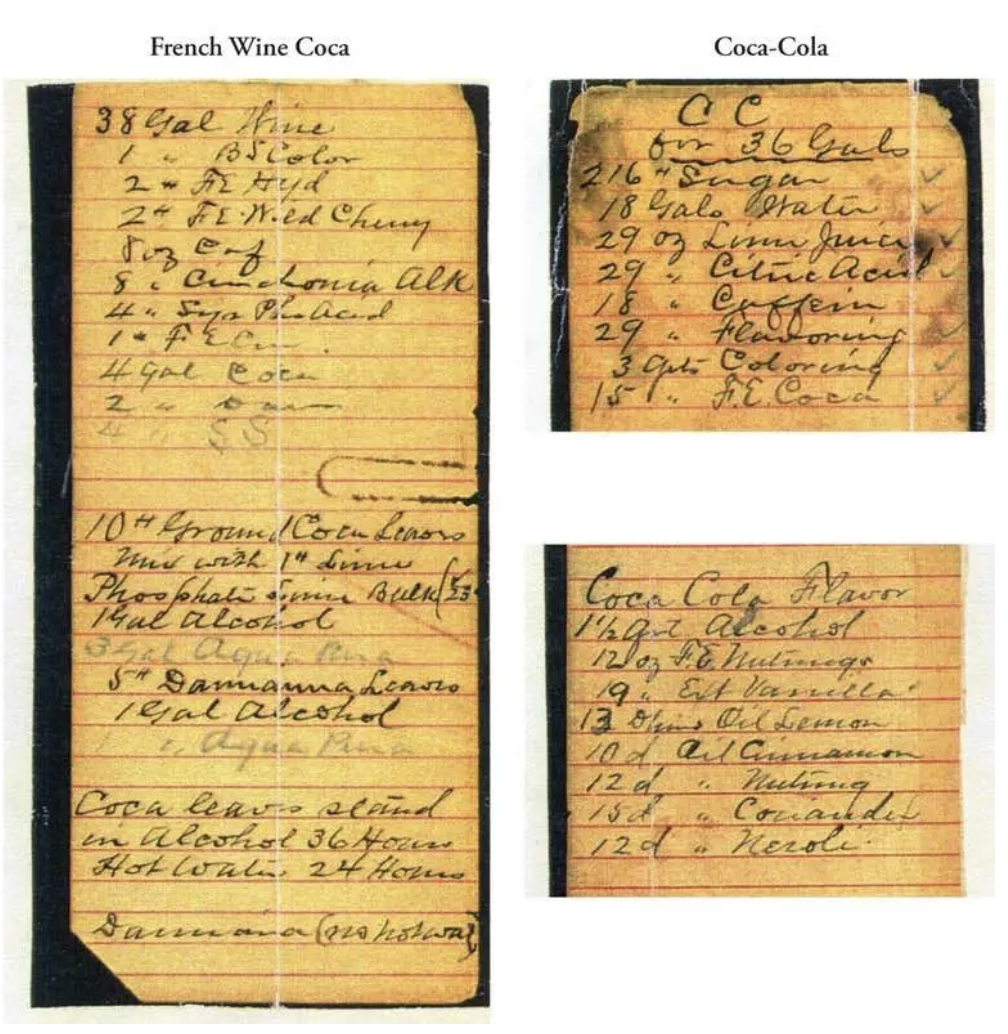 French Wine Coca
38 Gal Wine
1 " BS Color
2 " F.E. Hyd
2 " F.E. Wild Cherry
8 oz Caf
8 " Cinchonia Alk
4 " Syr Phs Acid
1 " F E
4 Gal Coca
2 "
4 " SS
10 # Ground Coca Leaves
Mix with 1 # Lime
Phosphate Lime Bulk
1 Gal Alcohol
3 Gal Aqua Pura
5 # Damianna Leaves
1 Gal Alcohol
1 " Aqua Pura
Coca leaves stand
in Alcohol 36 Hours
Hot Water 24 Hours
Damiana (no hot wat)
Coca-Cola
C C
for 36 Gals
216 # Sugar ✓
18 Gals Water ✓
29 oz Lime Juice ✓
29 " Citric Acid ✓
18 " Caffein
29 " Flavoring ✓
3 Gts Coloring ✓
15 " F.E. Coca ✓
Coca Cola Flavor
1½ Qrt Alcohol
12 oz F.E. Nutmegs
19 " Ext Vanilla
13 Oil Lemon
10 d Oil Cinnamon
12 d " Nutmeg
15 d " Coriander
12 d " Neroli